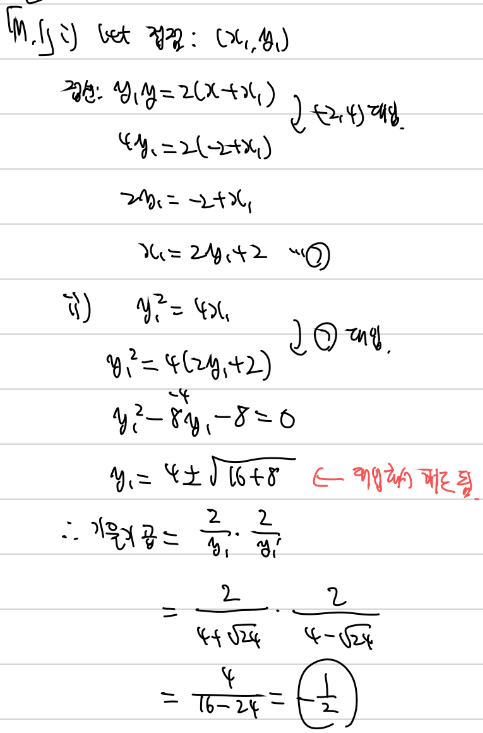 i) let 접점: (x₁, y₁)
접선: y₁y = 2(x+x₁) (-2,4) 대입.
4y₁ = 2(-2+x₁)
2y₁ = -2+x₁
x₁ = 2y₁+2 … ㉠
ii) y₁² = 4x₁
y₁² = 4(2y₁+2) ㉠ 대입.
-4
y₁² - 8y₁ - 8 = 0
y₁ = 4 ± √16+8 ← 대입해서 해도 됨.
∴ 기울기 곱 = 2/y₁ · 2/y₁'
= 2/4+√24 · 2/4-√24
= 4/16-24 = -1/2